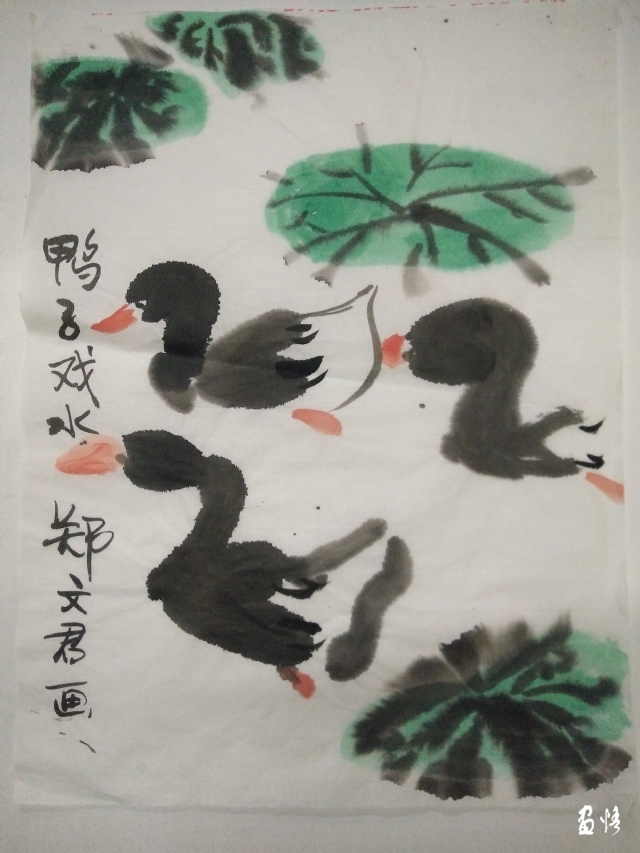 鸭子戏水
郑文君画
画悟